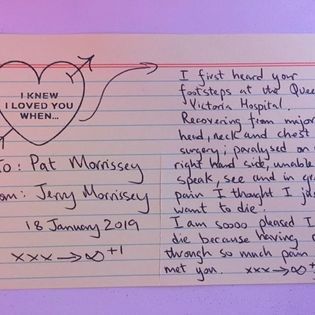 I KNEW
I LOVED YOU
WHEN...
To: Pat Morrissey
From: Jerry Morrissey
18 January 2019
xxx → ∞ +1
I first heard your
footsteps at the Queen
Victoria Hospital.
Recovering from major
head, neck and chest
surgery; paralysed on
right hand side, unable
speak, see and in
pain I thought I
want to die.
I am soooo pleased I
die because having
through so much pain
met you. xxx → ∞